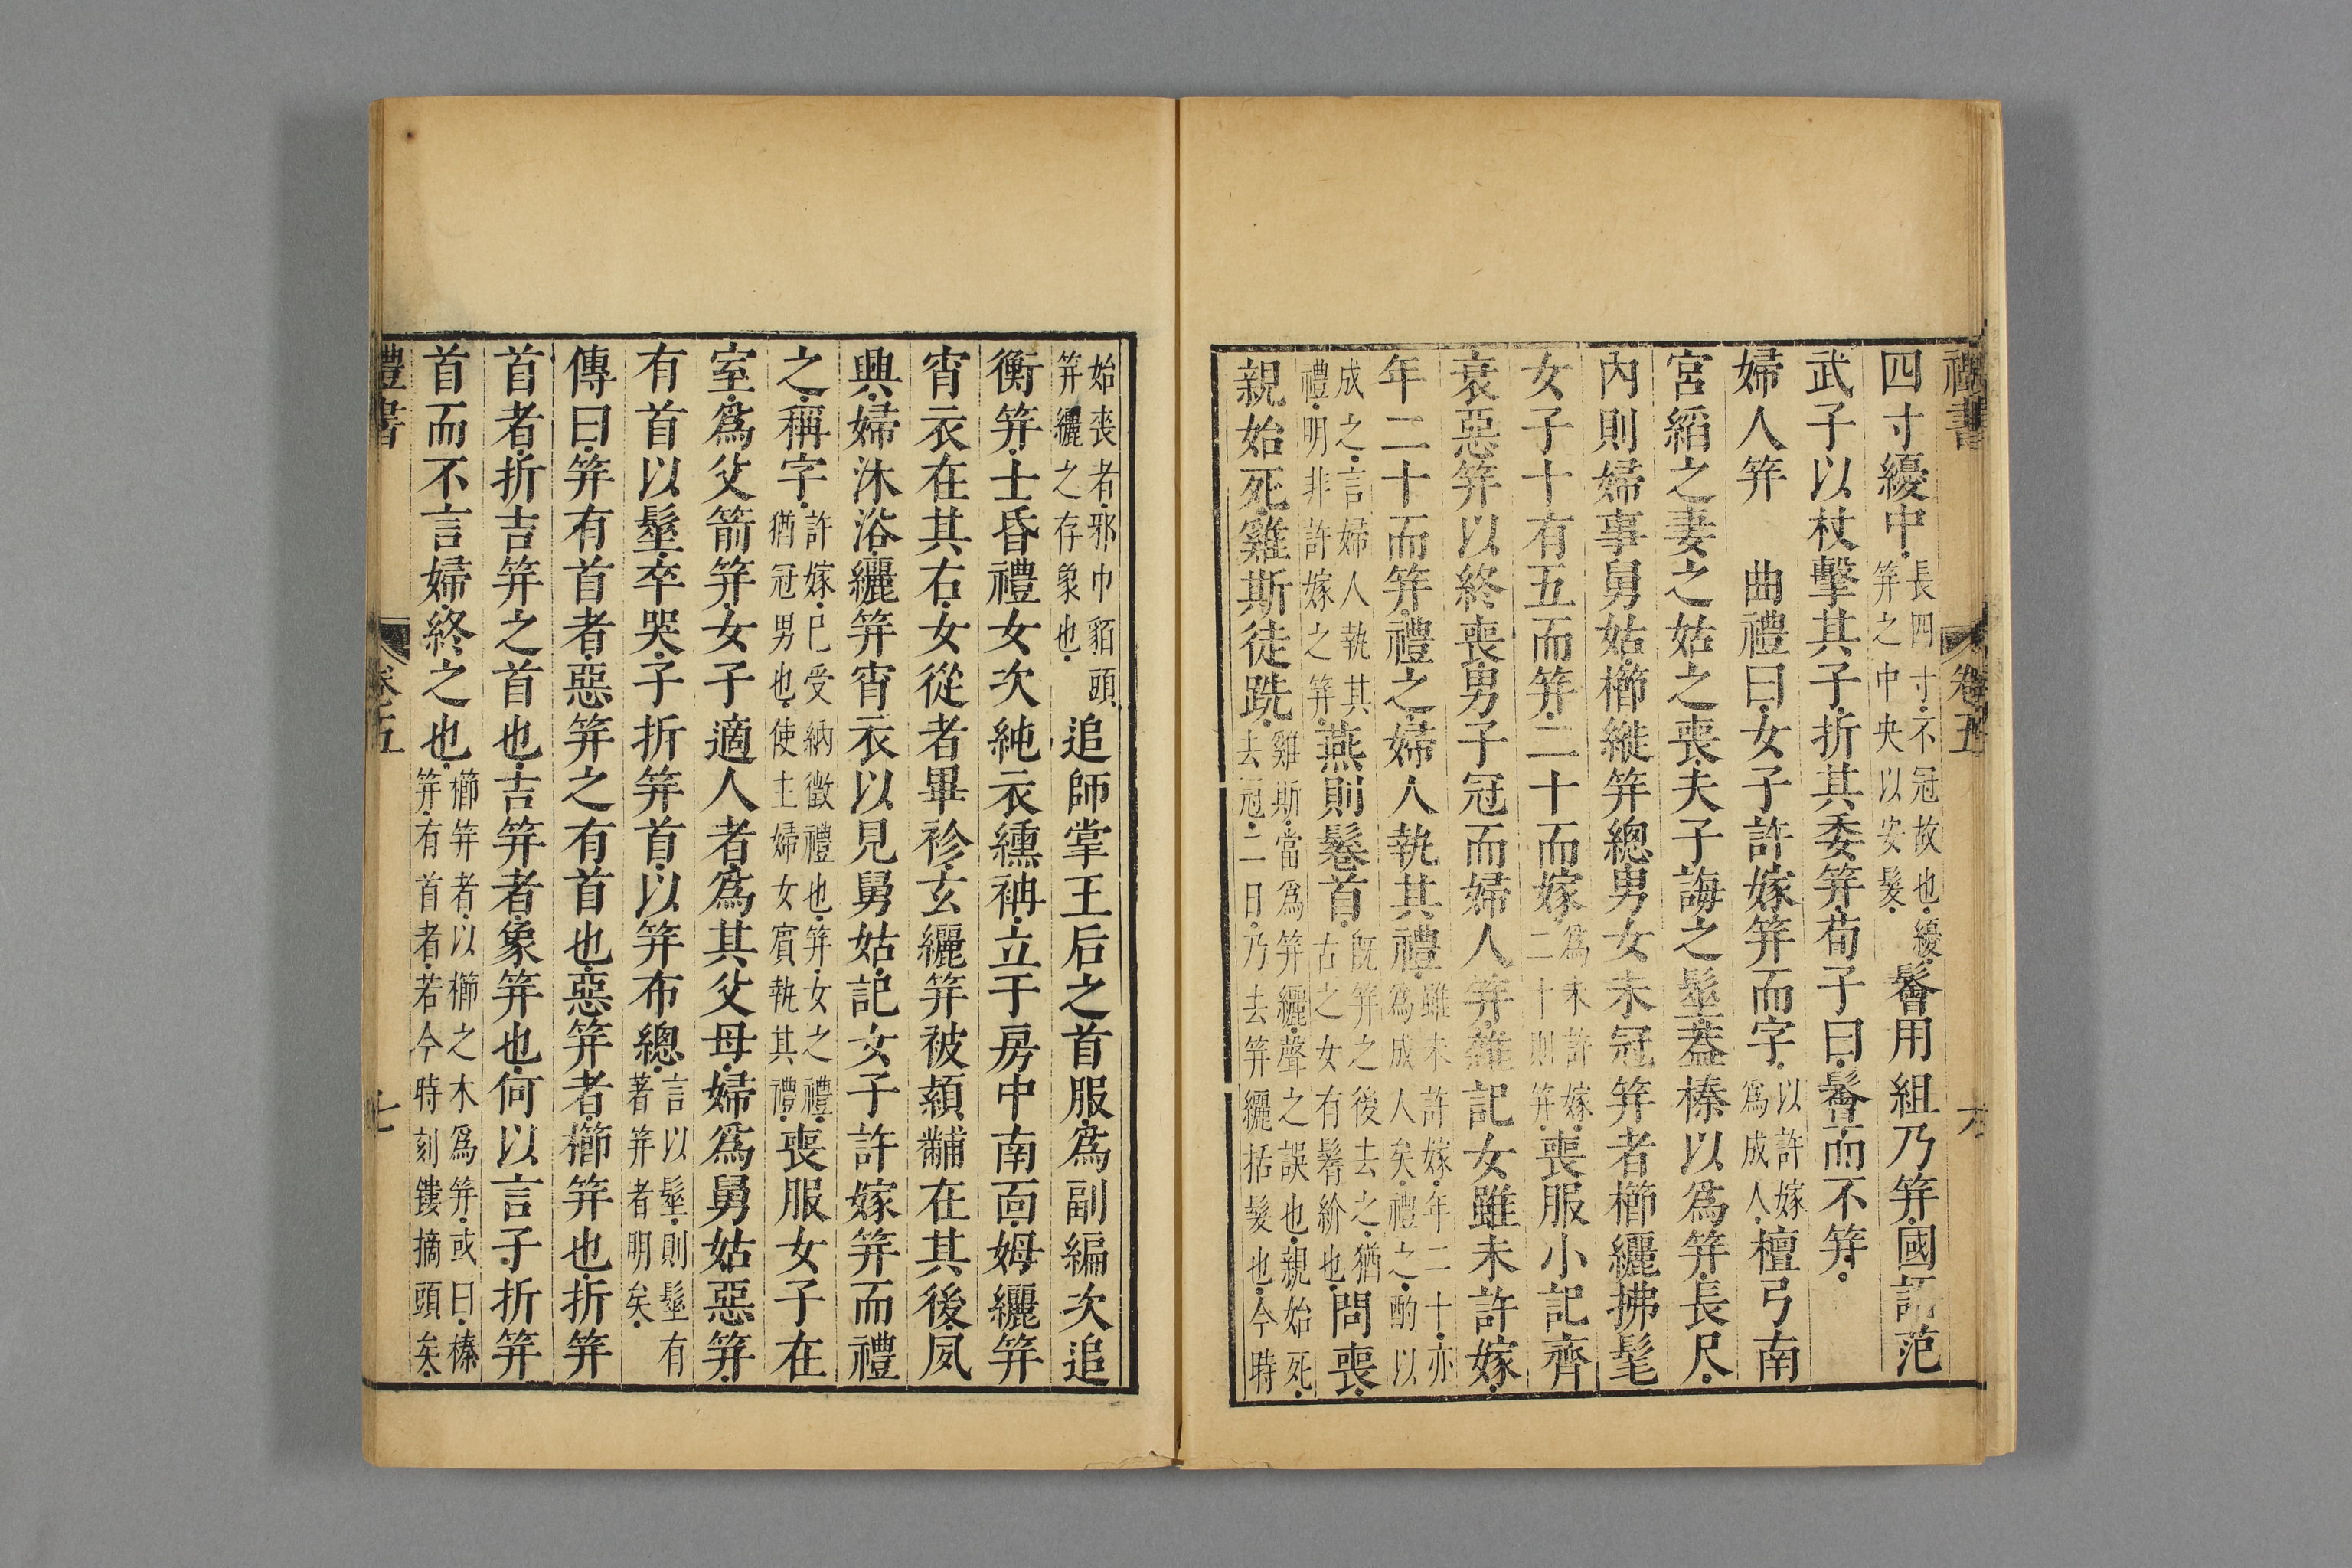 禮書 卷五 六
四寸纋中長四寸不冠故也纋笄之中央以安髮鬠用組乃笄國語范
武子以杖擊其子折其委笄荀子曰鬠而不笄
婦人笄 曲禮曰女子許嫁笄而字以許嫁爲成人檀弓南
宮縚之妻之姑之喪夫子誨之髽蓋榛以爲笄長尺
內則婦事舅姑櫛縰笄總男女未冠笄者櫛纚拂髦
女子十有五而笄二十而嫁爲未許嫁二十則笄喪服小記齊
衰惡笄以終喪男子冠而婦人笄雜記女雖未許嫁
年二十而笄禮之婦人執其禮雖未許嫁年二十亦爲成人矣禮之酌以
成之言婦人執其禮明非許嫁之笄燕則鬈首旣笄之後去之猶古之女有鬌紒也問喪
親始死雞斯徒跣雞斯當爲笄纚聲之誤也親始死去冠二日乃去笄纚括髮也今時
始喪者邪巾貊頭笄纚之存象也追師掌王后之首服爲副編次追
衡笄士昏禮女次純衣纁袡立于房中南面姆纚笄
宵衣在其右女從者畢袗玄纚笄被潁黼在其後夙
興婦沐浴纚笄宵衣以見舅姑記女子許嫁笄而禮
之稱字許嫁已受納徵禮也笄女之禮猶冠男也使主婦女賓執其禮喪服女子在
室爲父箭笄女子適人者爲其父母婦爲舅姑惡笄
有首以髽卒哭子折笄首以笄布總言以髽則髽有著笄者明矣
傳曰笄有首者惡笄之有首也惡笄者櫛笄也折笄
首者折吉笄之首也吉笄者象笄也何以言子折笄
首而不言婦終之也櫛笄者以櫛之木爲笄或曰榛笄有首者若今時刻鏤摘頭矣
禮書 卷五 七